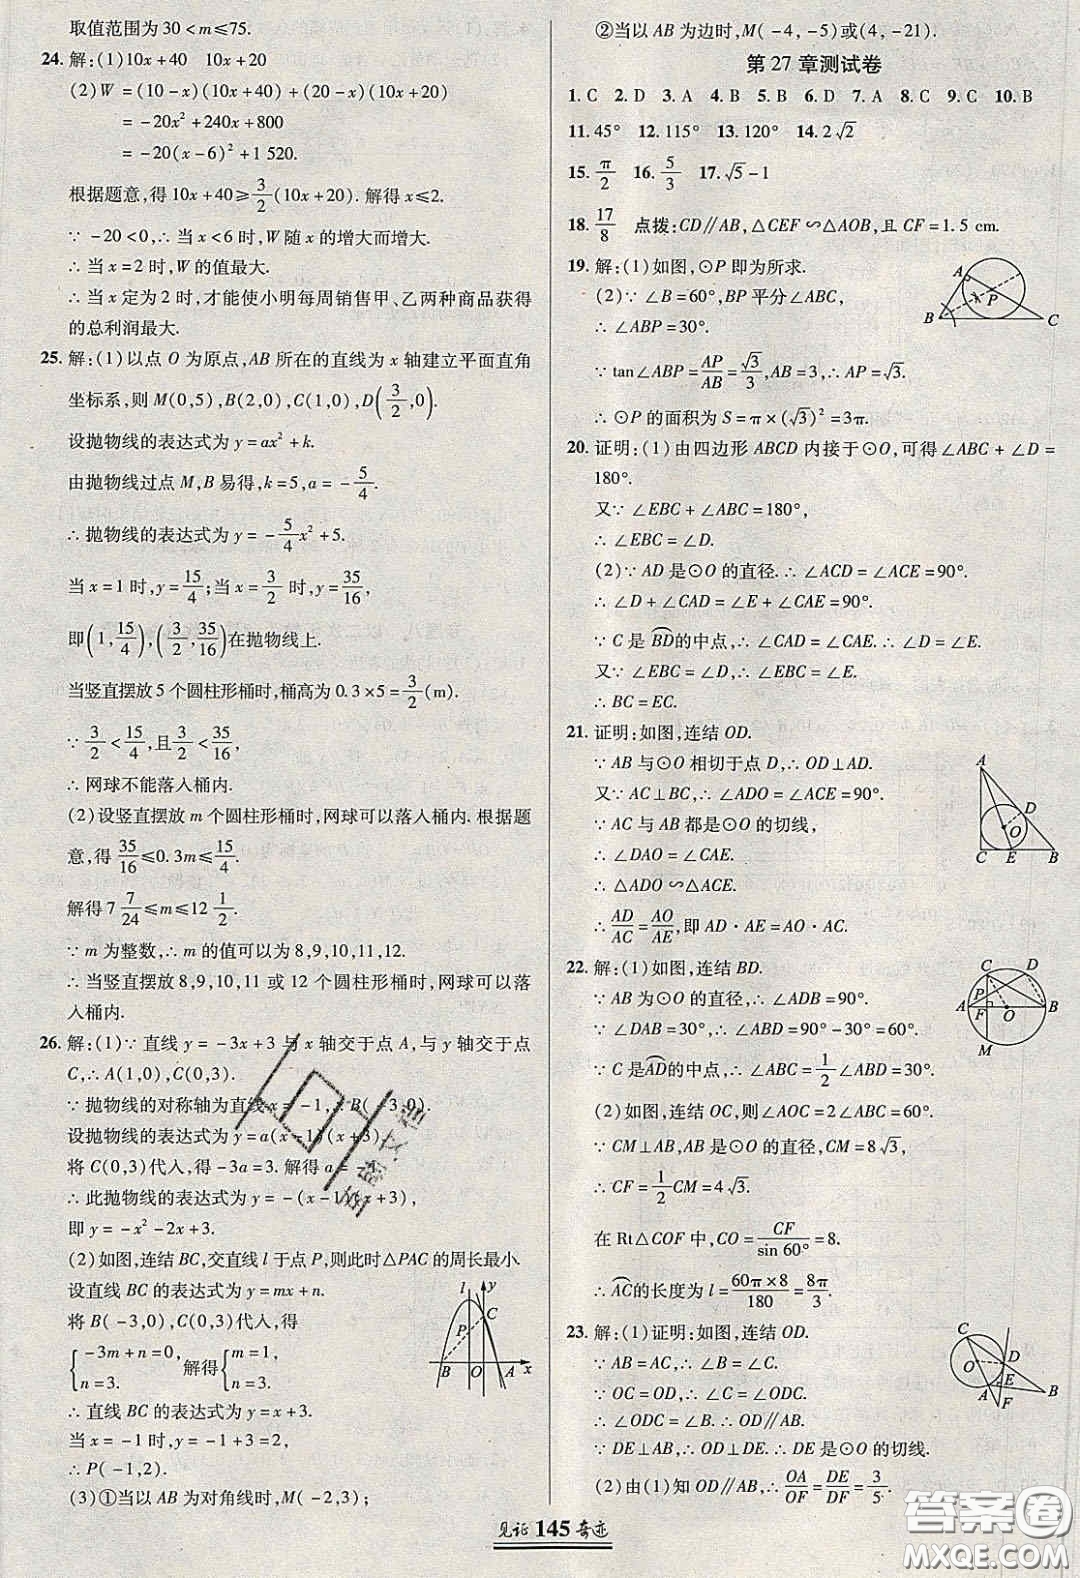 取值范围为 30<m≤75.
24. 解:(1)10x+40　10x+20
(2)W=(10-x)(10x+40)+(20-x)(10x+20)
=-20x²+240x+800
=-20(x-6)²+1 520.
根据题意,得 10x+40≥3/2(10x+20). 解得 x≤2.
∵ -20<0,∴ 当 x<6 时,W 随 x 的增大而增大.
∴ 当 x=2 时,W 的值最大.
∴ 当 x 定为 2 时,才能使小明每周销售甲、乙两种商品获得
的总利润最大.
25. 解:(1)以点 O 为原点,AB 所在的直线为 x 轴建立平面直角
坐标系,则 M(0,5),B(2,0),C(1,0),D(3/2,0).
设抛物线的表达式为 y=ax²+k.
由抛物线过点 M,B 易得,k=5,a=-5/4.
∴ 抛物线的表达式为 y=-5/4x²+5.
当 x=1 时,y=15/4;当 x=3/2 时,y=35/16,
即(1,15/4),(3/2,35/16)在抛物线上.
当竖直摆放 5 个圆柱形桶时,桶高为 0.3×5=3/2(m).
∵ 3/2<15/4,且 3/2<35/16,
∴ 网球不能落入桶内.
(2)设竖直摆放 m 个圆柱形桶时,网球可以落入桶内. 根据题
意,得 35/16≤0.3m≤15/4.
解得 7 7/24≤m≤12 1/2.
∵ m 为整数,∴ m 的值可以为 8,9,10,11,12.
∴ 当竖直摆放 8,9,10,11 或 12 个圆柱形桶时,网球可以落
入桶内.
26. 解:(1)∵ 直线 y=-3x+3 与 x 轴交于点 A,与 y 轴交于点
C,∴ A(1,0),C(0,3).
∵ 抛物线的对称轴为直线 x=-1,∴ B(-3,0).
设抛物线的表达式为 y=a(x-1)(x+3),
将 C(0,3)代入,得 -3a=3. 解得 a=-1.
∴ 此抛物线的表达式为 y=-(x-1)(x+3),
即 y=-x²-2x+3.
(2)如图,连结 BC,交直线 l 于点 P,则此时△PAC 的周长最小.
设直线 BC 的表达式为 y=mx+n.
将 B(-3,0),C(0,3)代入,得
{-3m+n=0, n=3. 解得{m=1, n=3.
∴ 直线 BC 的表达式为 y=x+3.
当 x=-1 时,y=2,
∴ P(-1,2).
(3)①当以 AB 为对角线时,M(-2,3);
l y C P B O A x
②当以 AB 为边时,M(-4,-5)或(4,-21).
第 27 章测试卷
1. C　2. D　3. A　4. B　5. B　6. D　7. A　8. C　9. C　10. B
11. 45°　12. 115°　13. 120°　14. 2√2
15. π/2　16. 5/3　17. √5-1
18. 17/8　点拨:CD∥AB,△CEF∽△AOB,且 CF=1.5 cm.
19. 解:(1)如图,⊙P 即为所求.
(2)∵ ∠B=60°,BP 平分∠ABC,
∴ ∠ABP=30°.
∵ tan∠ABP=AP/AB=√3/3,AB=3,∴ AP=√3.
∴ ⊙P 的面积为 S=π×(√3)²=3π.
A P B C
20. 证明:(1)由四边形 ABCD 内接于⊙O,可得∠ABC+∠D=
180°.
又∵ ∠EBC+∠ABC=180°,
∴ ∠EBC=∠D.
(2)∵ AD 是⊙O 的直径.∴ ∠ACD=∠ACE=90°.
∴ ∠D+∠CAD=∠E+∠CAE=90°.
∵ C 是 BD⌢的中点,∴ ∠CAD=∠CAE.∴ ∠D=∠E.
又∵ ∠EBC=∠D,∴ ∠EBC=∠E,
∴ BC=EC.
21. 证明:如图,连结 OD.
∵ AB 与⊙O 相切于点 D,∴ OD⊥AD.
又∵ AC⊥BC,∴ ∠ADO=∠ACE=90°.
∵ AC 与 AB 都是⊙O 的切线,
∴ ∠DAO=∠CAE.
∴ △ADO∽△ACE.
∴ AD/AC=AO/AE,即 AD·AE=AO·AC.
A D O C E B
22. 解:(1)如图,连结 BD.
∵ AB 为⊙O 的直径,∴ ∠ADB=90°.
∵ ∠DAB=30°,∴ ∠ABD=90°-30°=60°.
∵ C 是 AD⌢的中点,∴ ∠ABC=1/2∠ABD=30°.
(2)如图,连结 OC,则∠AOC=2∠ABC=60°.
∵ CM⊥AB,AB 是⊙O 的直径,CM=8√3,
∴ CF=1/2CM=4√3.
在 Rt△COF 中,CO=CF/sin 60°=8.
∴ AC⌢的长度为 l=60π×8/180=8π/3.
C D P A F O B M
23. 解:(1)证明:如图,连结 OD.
∵ AB=AC,∴ ∠B=∠C.
∵ OC=OD,∴ ∠C=∠ODC.
∴ ∠ODC=∠B,∴ OD∥AB.
∵ DE⊥AB,∴ OD⊥DE.∴ DE 是⊙O 的切线.
(2)由(1)知 OD∥AB,∴ OA/OF=DE/DF=3/5.
C O D E A F B
见证 145 奇迹
答案圈
MXQE.COM